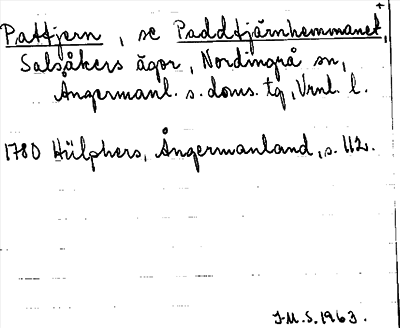 Pattjern, se Paddtjärnhemmanet,
Salsåkers ägor, Nordingrå sn,
Ångermanl. s. doms. tg, Vrnl. l.
1780 Hülphers, Ångermanland, s. 112.
J.M.S. 1963.